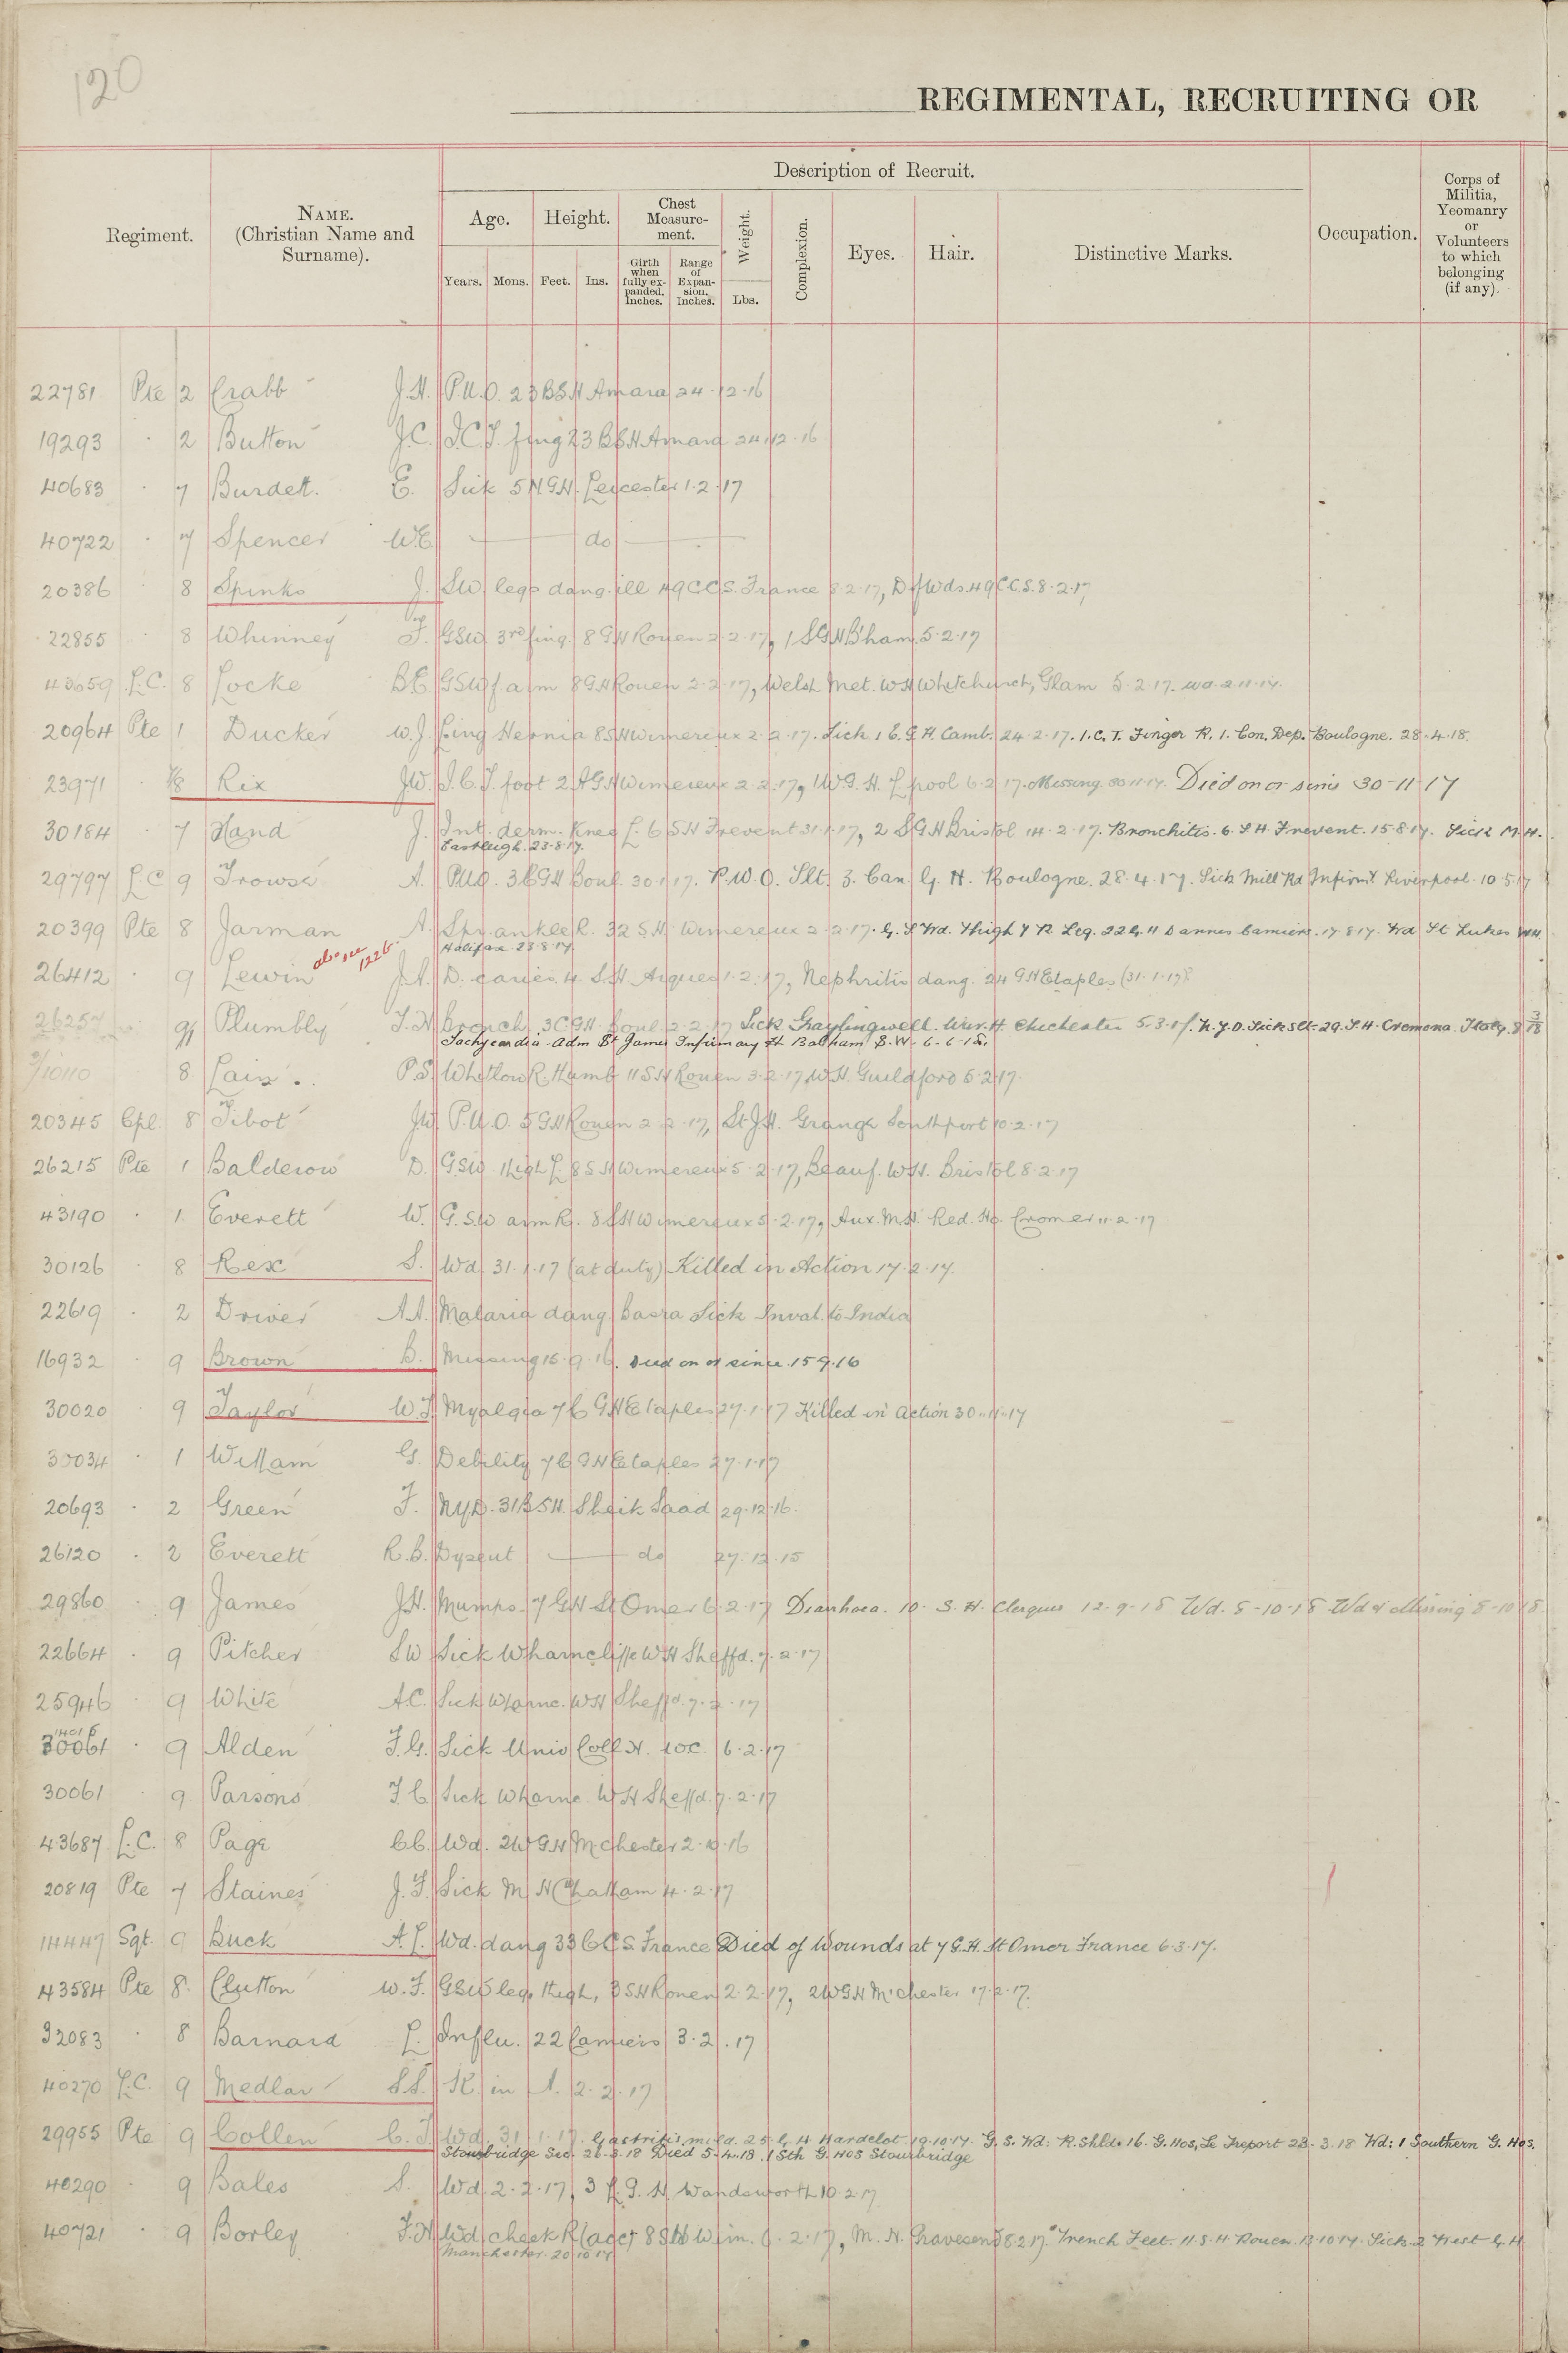 120
REGIMENTAL, RECRUITING OR
Description of Recruit.
Regiment.
NAME.
(Christian Name and
Surname).
Age.
Height.
Chest
Measure-
ment.
Weight.
Complexion.
Eyes.
Hair.
Distinctive Marks.
Occupation.
Corps of
Militia,
Yeomanry
or
Volunteers
to which
belonging
(if any).
Years.
Mons.
Feet.
Ins.
Girth
when
fully ex-
panded.
Inches.
Range
of
Expan-
sion.
Inches.
Lbs.
22781 Pte 2 Crabb J.H. P.U.O. 23 BSH Amara 24.12.16
19293 · 2 Button J.C. I.C.T. fing 23 BSH Amara 24.12.16
40683 · 7 Burdett. E. Sick 5 N.G.H. Leicester 1.2.17
40722 · 7 Spencer W.E. do
20386 8 Spinks J. SW legs dang. ill 49 CCS. France 8.2.17, D of Wds. 49 C.C.S. 8.2.17
22855 8 Whinney F. GSW 3rd fing. 8 GH Rouen 2.2.17, 1 SGH B'ham. 5.2.17
43059 L.C. 8 Locke GSW f arm 8 GH Rouen 2.2.17, Welsh Met. WH Whitchurch, Glam 5.2.17. Wd. 2.11.17.
20964 Pte 1 Ducker W.J. Ing Hernia 8 SH Wimereux 2.2.17. Sick 1 E. G. H. Camb. 24.2.17. I.C.T. Finger R. 1. Con. Dep. Boulogne. 28.4.18.
23971 7/8 Rix J.W. I.C.T. foot 2 AGH Wimereux 2.2.17, 1 W.G.H. L'pool 6.2.17. Missing. 30.11.17. Died on or since 30-11-17
30184 · 7 Hand J. Int. derm. Knee L. 6 SH Frevent 31.1.17, 2 SGH Bristol 14.2.17. Bronchitis. 6. S.H. Frevent. 15.8.17. Sick M.H.
Eastleigh. 23.8.17.
29797 L.C 9 Trowse A. PUO. 3 CGH Boul. 30.1.17. P.W.O. Slt. 3. Can. G. H. Boulogne. 28.4.17. Sick Mill Rd Infirm'y Liverpool. 10.5.17
20399 Pte 8 Jarman A. Spr ankle R. 32 S.H. Wimereux 2.2.17. G.S. Wd. Thigh & R Leg. 22 G.H Dannes Camiers. 17.8.17. Wd St Lukes WH.
Halifax 23.8.17.
also see 1226.
26412 · 9 Lewin J.A. D. caries 4 S.H. Arques 1.2.17, Nephritis dang. 24 GH Etaples (31.1.17)
26257 9 Plumbly Bronch. 3 CGH Boul 2.2.17 Sick Graylingwell. War. H. Chichester 5.3.17. N.Y.D. Sick Slt. 29. S.H. Cremona. Italy. 8 3/18
Tachycardia. Adm St James Infirmary H Balham S.W. 6-6-18.
3/10110 8 Lain. P.S. Whitlow R. thumb 11 SH Rouen 3.2.17, W.H. Guildford 6.2.17.
20345 Cpl. 8 Tibot J.W. P.U.O. 5 GH Rouen 2.2.17, St J.H. Grange Southport 10.2.17
26215 Pte 1 Balderow D. GSW. thigh L. 8 SH Wimereux 5.2.17, Beauf. W.H. Bristol 8.2.17
43190 · 1. Everett W. G.S.W. arm R. 8 SH Wimereux 5.2.17, Aux. M.H. Red. Ho. Cromer 11.2.17
30126 · 8 Rex S. Wd. 31.1.17 (at duty) Killed in Action 17.2.17.
22619 · 2 Driver A.A. Malaria dang. Basra Sick Inval. to India
16932 · 9 Brown B. Missing 15.9.16. Died on or since. 15.9.16
30020 · 9 Taylor W.J. Myalgia 7 C GH Etaples 27.1.17 Killed in Action 30.11.17
30034 · 1 Willam G. Debility 7 C GH Etaples 27.1.17
20693 · 2 Green F. NYD. 31 BSH. Sheik Saad 29.12.16.
26120 · 2 Everett R.B. Dysent do 27.12.15
29860 · 9 James J.H. Mumps. 7 GH St Omer 6.2.17 Diarrhoea. 10. S. H. Clerques 12-9-18 Wd. 8-10-18 Wd & Missing 8-10-18.
22664 · 9 Pitcher S.W Sick Wharncliffe WH Sheffd. 7.2.17
25946 · 9 White A.C. Sick Wharnc. WH Sheffd. 7.2.17
14016
30061 · 9 Alden F.G. Sick Univ Coll H. 6.2.17
30061 · 9 Parsons F.C. Sick Wharnc. WH Sheffd. 7.2.17
43687 L.C. 8 Page C.C. Wd. 2 W GH M'chester 2.10.16
20819 Pte 7 Staines J.F. Sick M H Chatham 4.2.17
14447 Sgt. 9 Buck A.L. Wd. dang 33 CCS France Died of Wounds at 7 G.H. St Omer France 6.3.17.
43584 Pte 8. Clutton W.F. GSW leg, thigh, 3 SH Rouen 2.2.17, 2 W GH M'chester 17.2.17.
32083 · 8 Barnard L. Influ. 22 Camiers 3.2.17
40270 L.C. 9 Medlar S.S. K. in A. 2.2.17
29955 Pte 9 Collen C.J. Wd. 31.1.17. Gastritis mild. 25 G. H Hardelot. 19.10.17. G.S. Wd: R. Shldr 16. G. Hos, Le Treport 23-3.18 Wd: 1 Southern G. Hos.
Stourbridge Sec. 26.3.18 Died 5.4.18. 1 Sth G. Hos Stourbridge
40290 · 9 Bales S. Wd. 2.2.17, 3 L.G.H. Wandsworth 10.2.17
40721 · 9 Borley F.H Wd. cheek R (acc) 8 SH Wim. 6.2.17, M.H. Gravesend 8.2.17. Trench Feet. 11. S. H Rouen. 13.10.17. Sick. 2 West G. H.
Manchester. 20.10.17